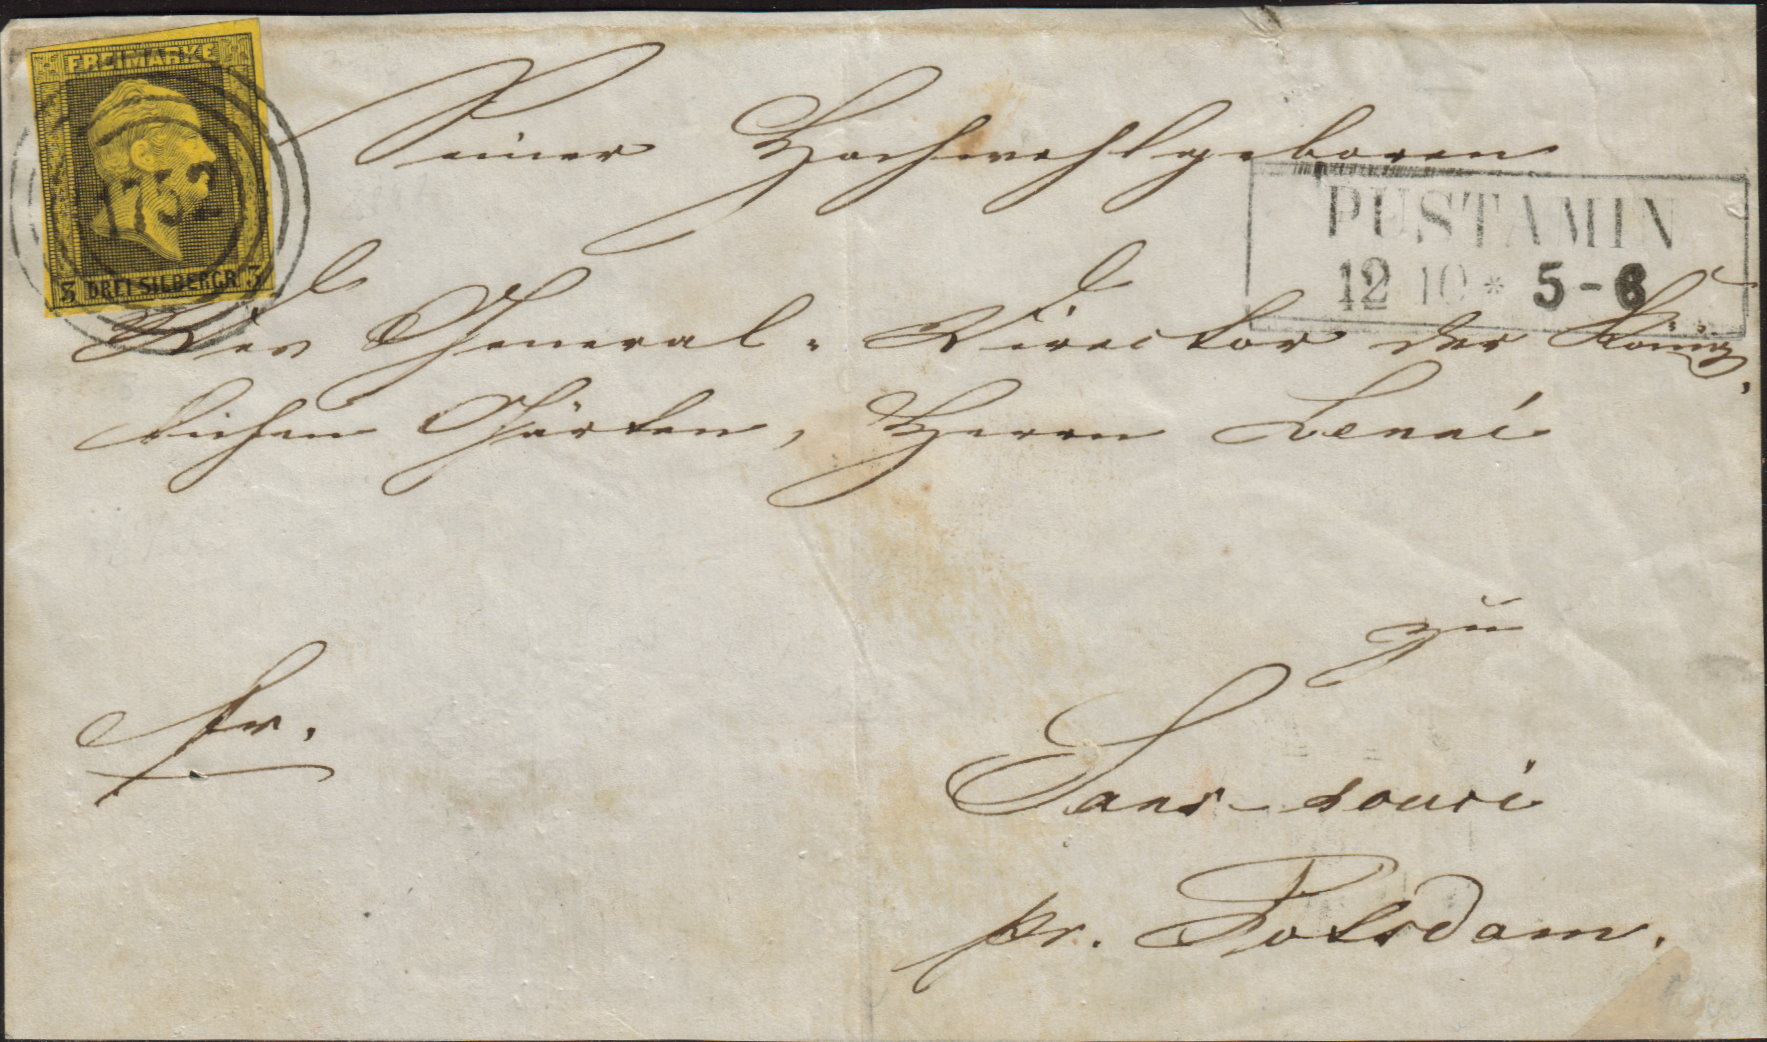 FREIMARKE
1732
3 DREI SILBERGR. 3
Seiner Hochwohlgeboren
PUSTAMIN
12 10 * 5-6
General-Director der König
lichen Gärten, Herrn Lenné
zu
fr.
Sans-souci
pr. Potsdam.